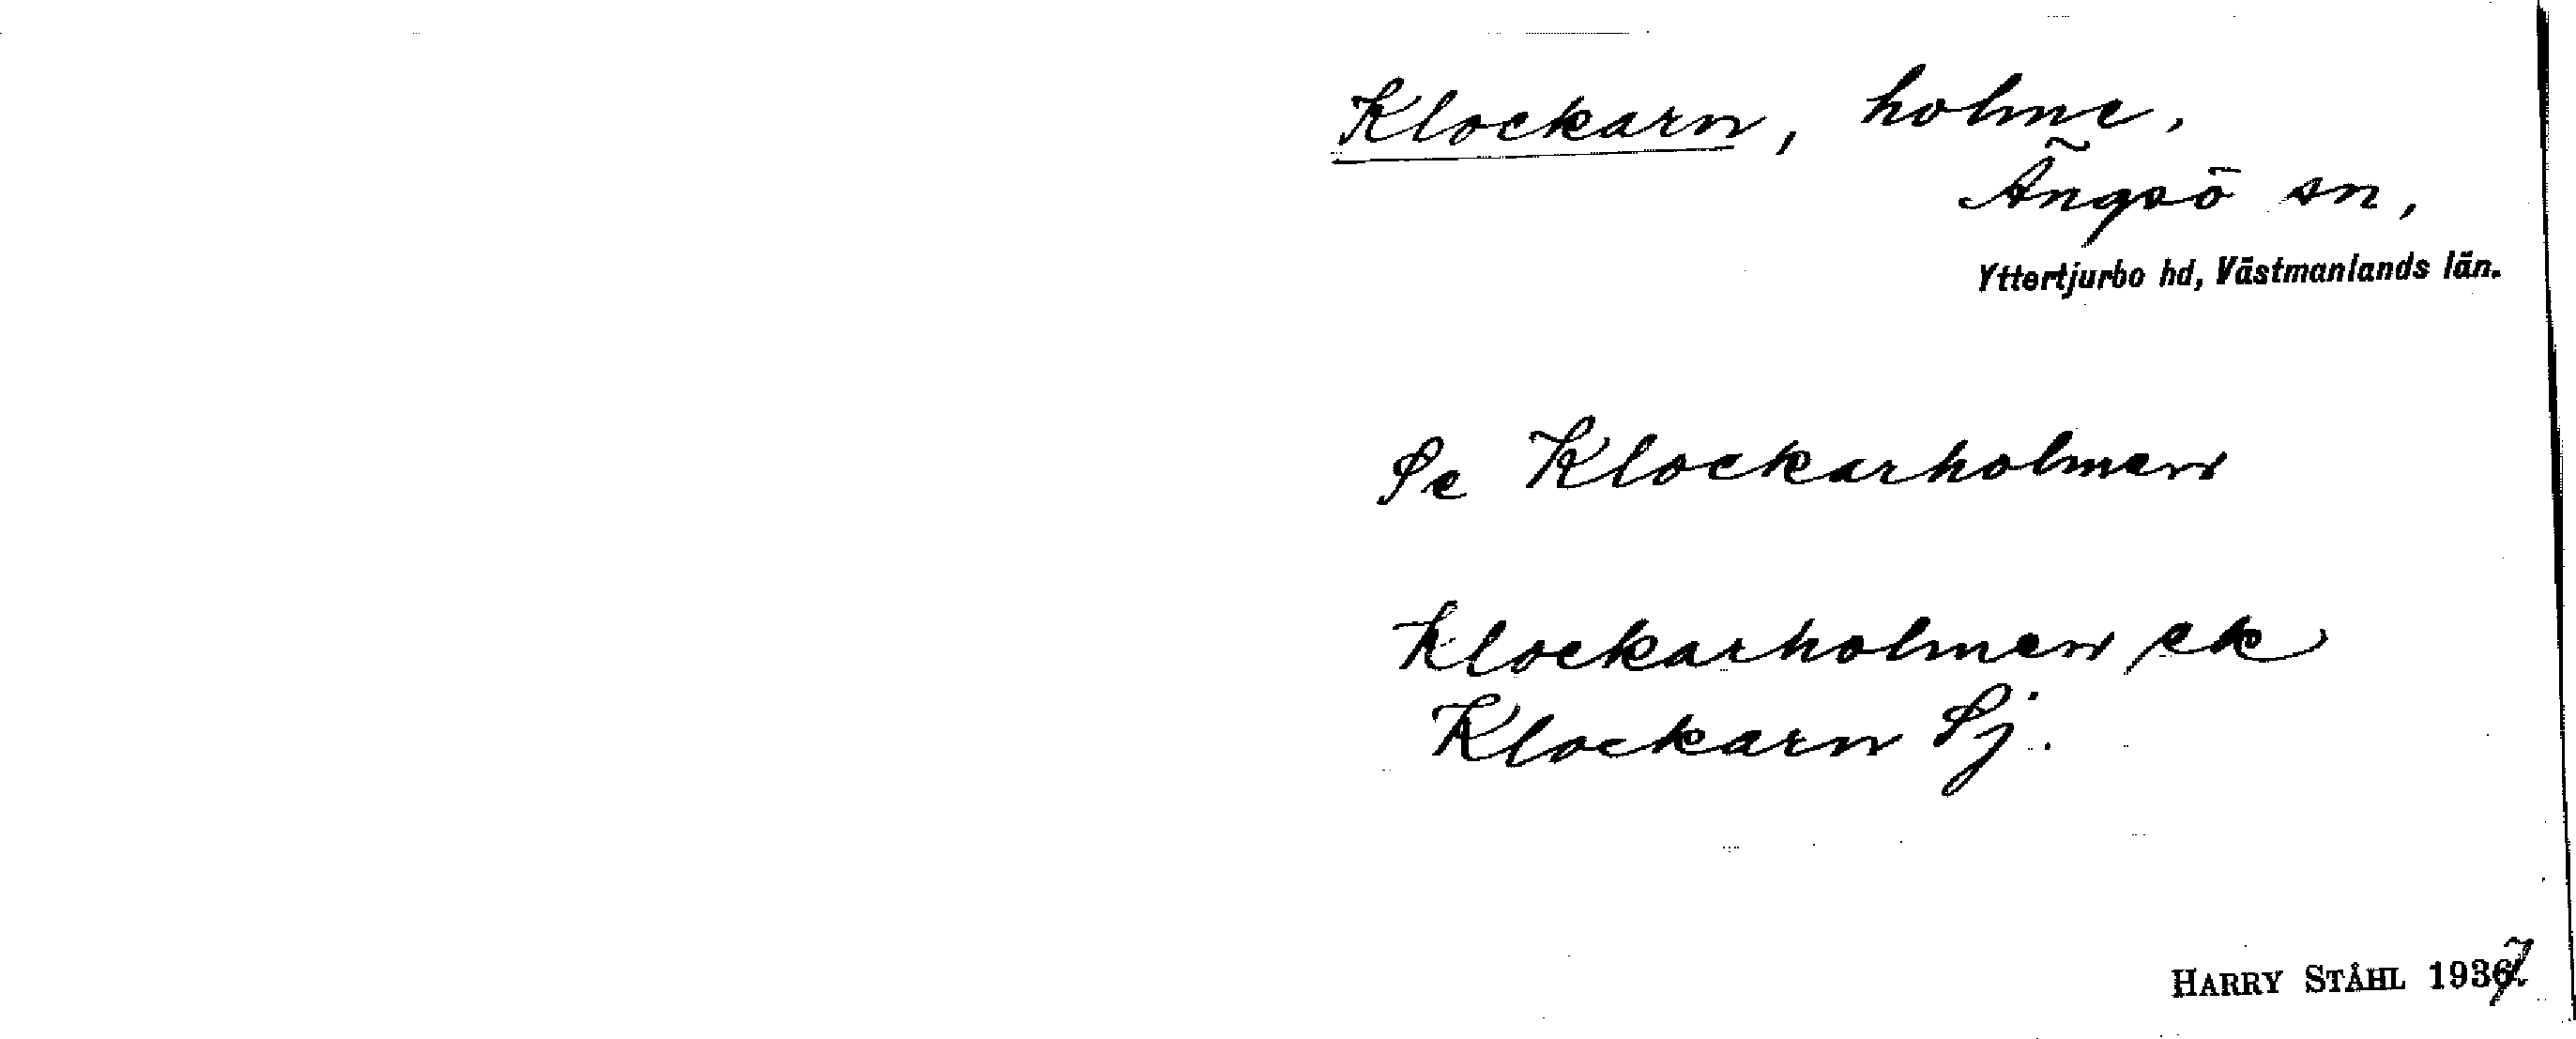 Klockarn, holme,
Ängsö sn,
Yttertjurbo hd, Västmanlands län.
Se Klockarholmen
Klockarholmen ek
Klockarn Sj.
HARRY STÅHL 1937.